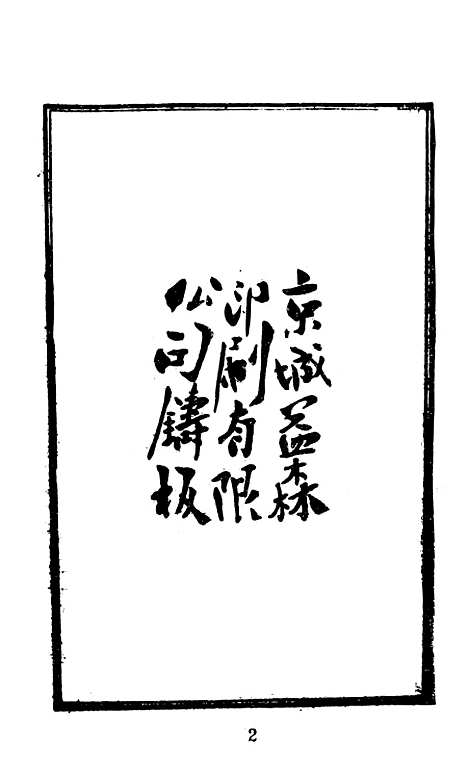 京城益森
印刷有限
公司鑄板
2